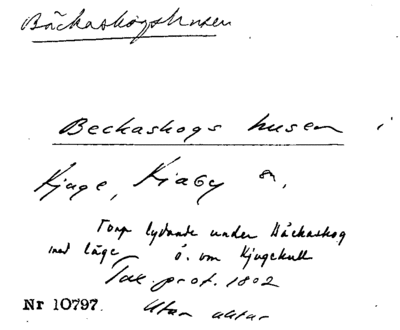 Bäckaskogshusen
Beckaskogs husen i
Kjuge, Kiaby sn.
Torp lydande under Bäckaskog
med läge ö. om Kjugekull
Tax. prot. 1802
Nr 10797. Utan uttal